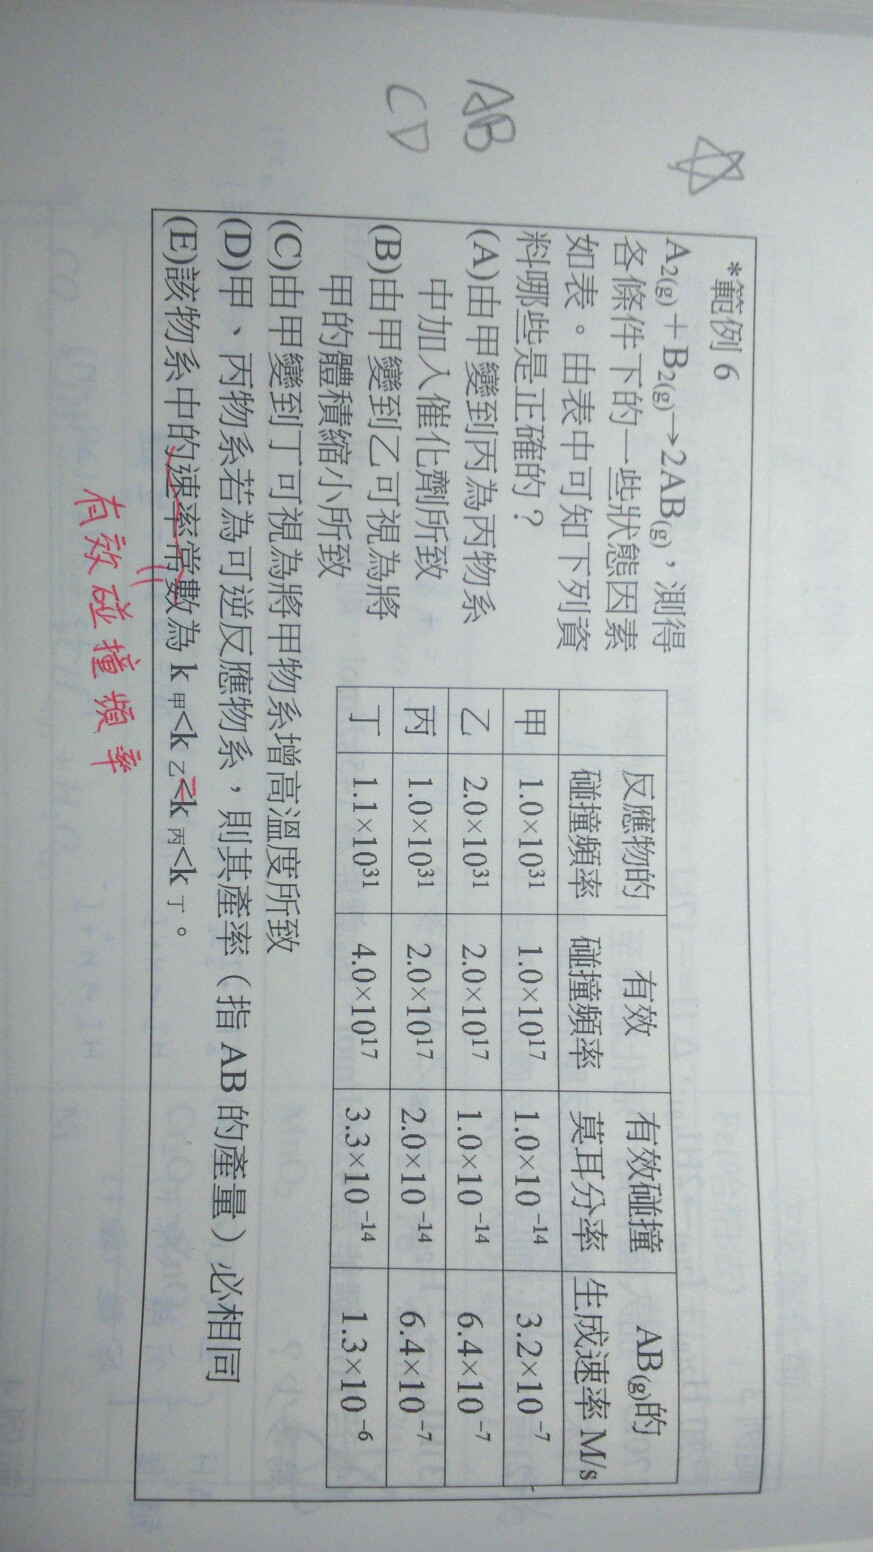 AB
CD
*範例 6
A2(g)＋B2(g)→2AB(g)，測得
各條件下的一些狀態因素
如表。由表中可知下列資
料哪些是正確的？
(A)由甲變到丙為丙物系
中加入催化劑所致
(B)由甲變到乙可視為將
甲的體積縮小所致
反應物的 碰撞頻率 有效 碰撞頻率 有效碰撞 莫耳分率 AB(g)的 生成速率 M/s
甲 1.0×10^31 1.0×10^17 1.0×10^-14 3.2×10^-7
乙 2.0×10^31 2.0×10^17 1.0×10^-14 6.4×10^-7
丙 1.0×10^31 2.0×10^17 2.0×10^-14 6.4×10^-7
丁 1.1×10^31 4.0×10^17 3.3×10^-14 1.3×10^-6
(C)由甲變到丁可視為將甲物系增高溫度所致
(D)甲、丙物系若為可逆反應物系，則其產率（指 AB 的產量）必相同
(E)該物系中的速率常數為 k甲<k乙<k丙<k丁。
有效碰撞頻率